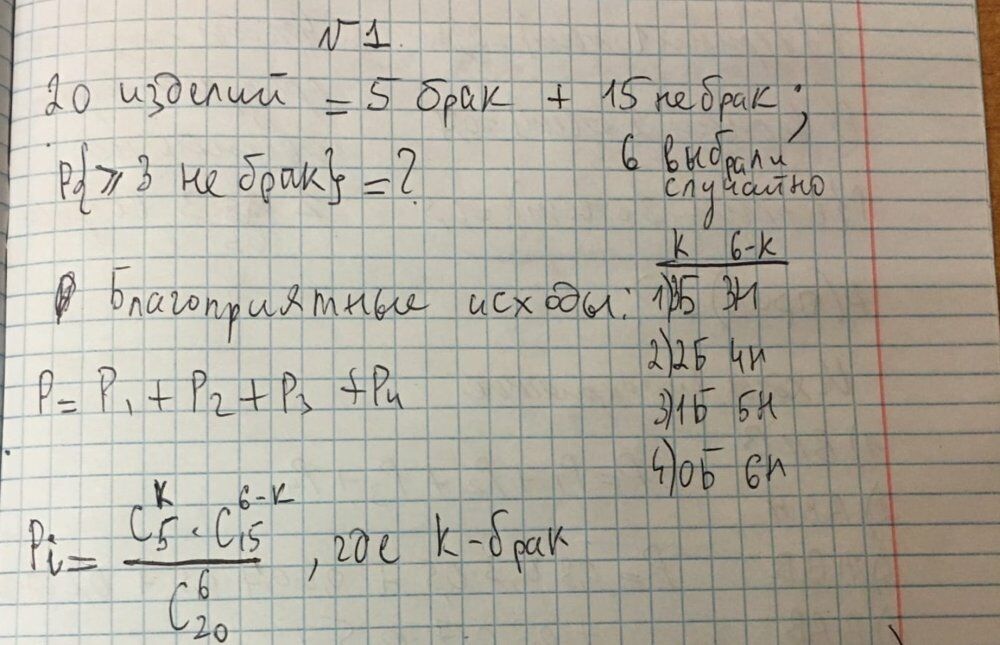 №1
20 изделий = 5 брак + 15 не брак;
6 выбрали
случайно
P{≥ 3 не брак} = ?
K 6-K
Благоприятные исходы: 1) 3Б 3Н
2) 2Б 4Н
P = P₁ + P₂ + P₃ + P₄
3) 1Б 5Н
4) 0Б 6Н
Pᵢ = (C₅ᴷ · C₁₅⁶⁻ᴷ) / C₂₀⁶, где K-брак